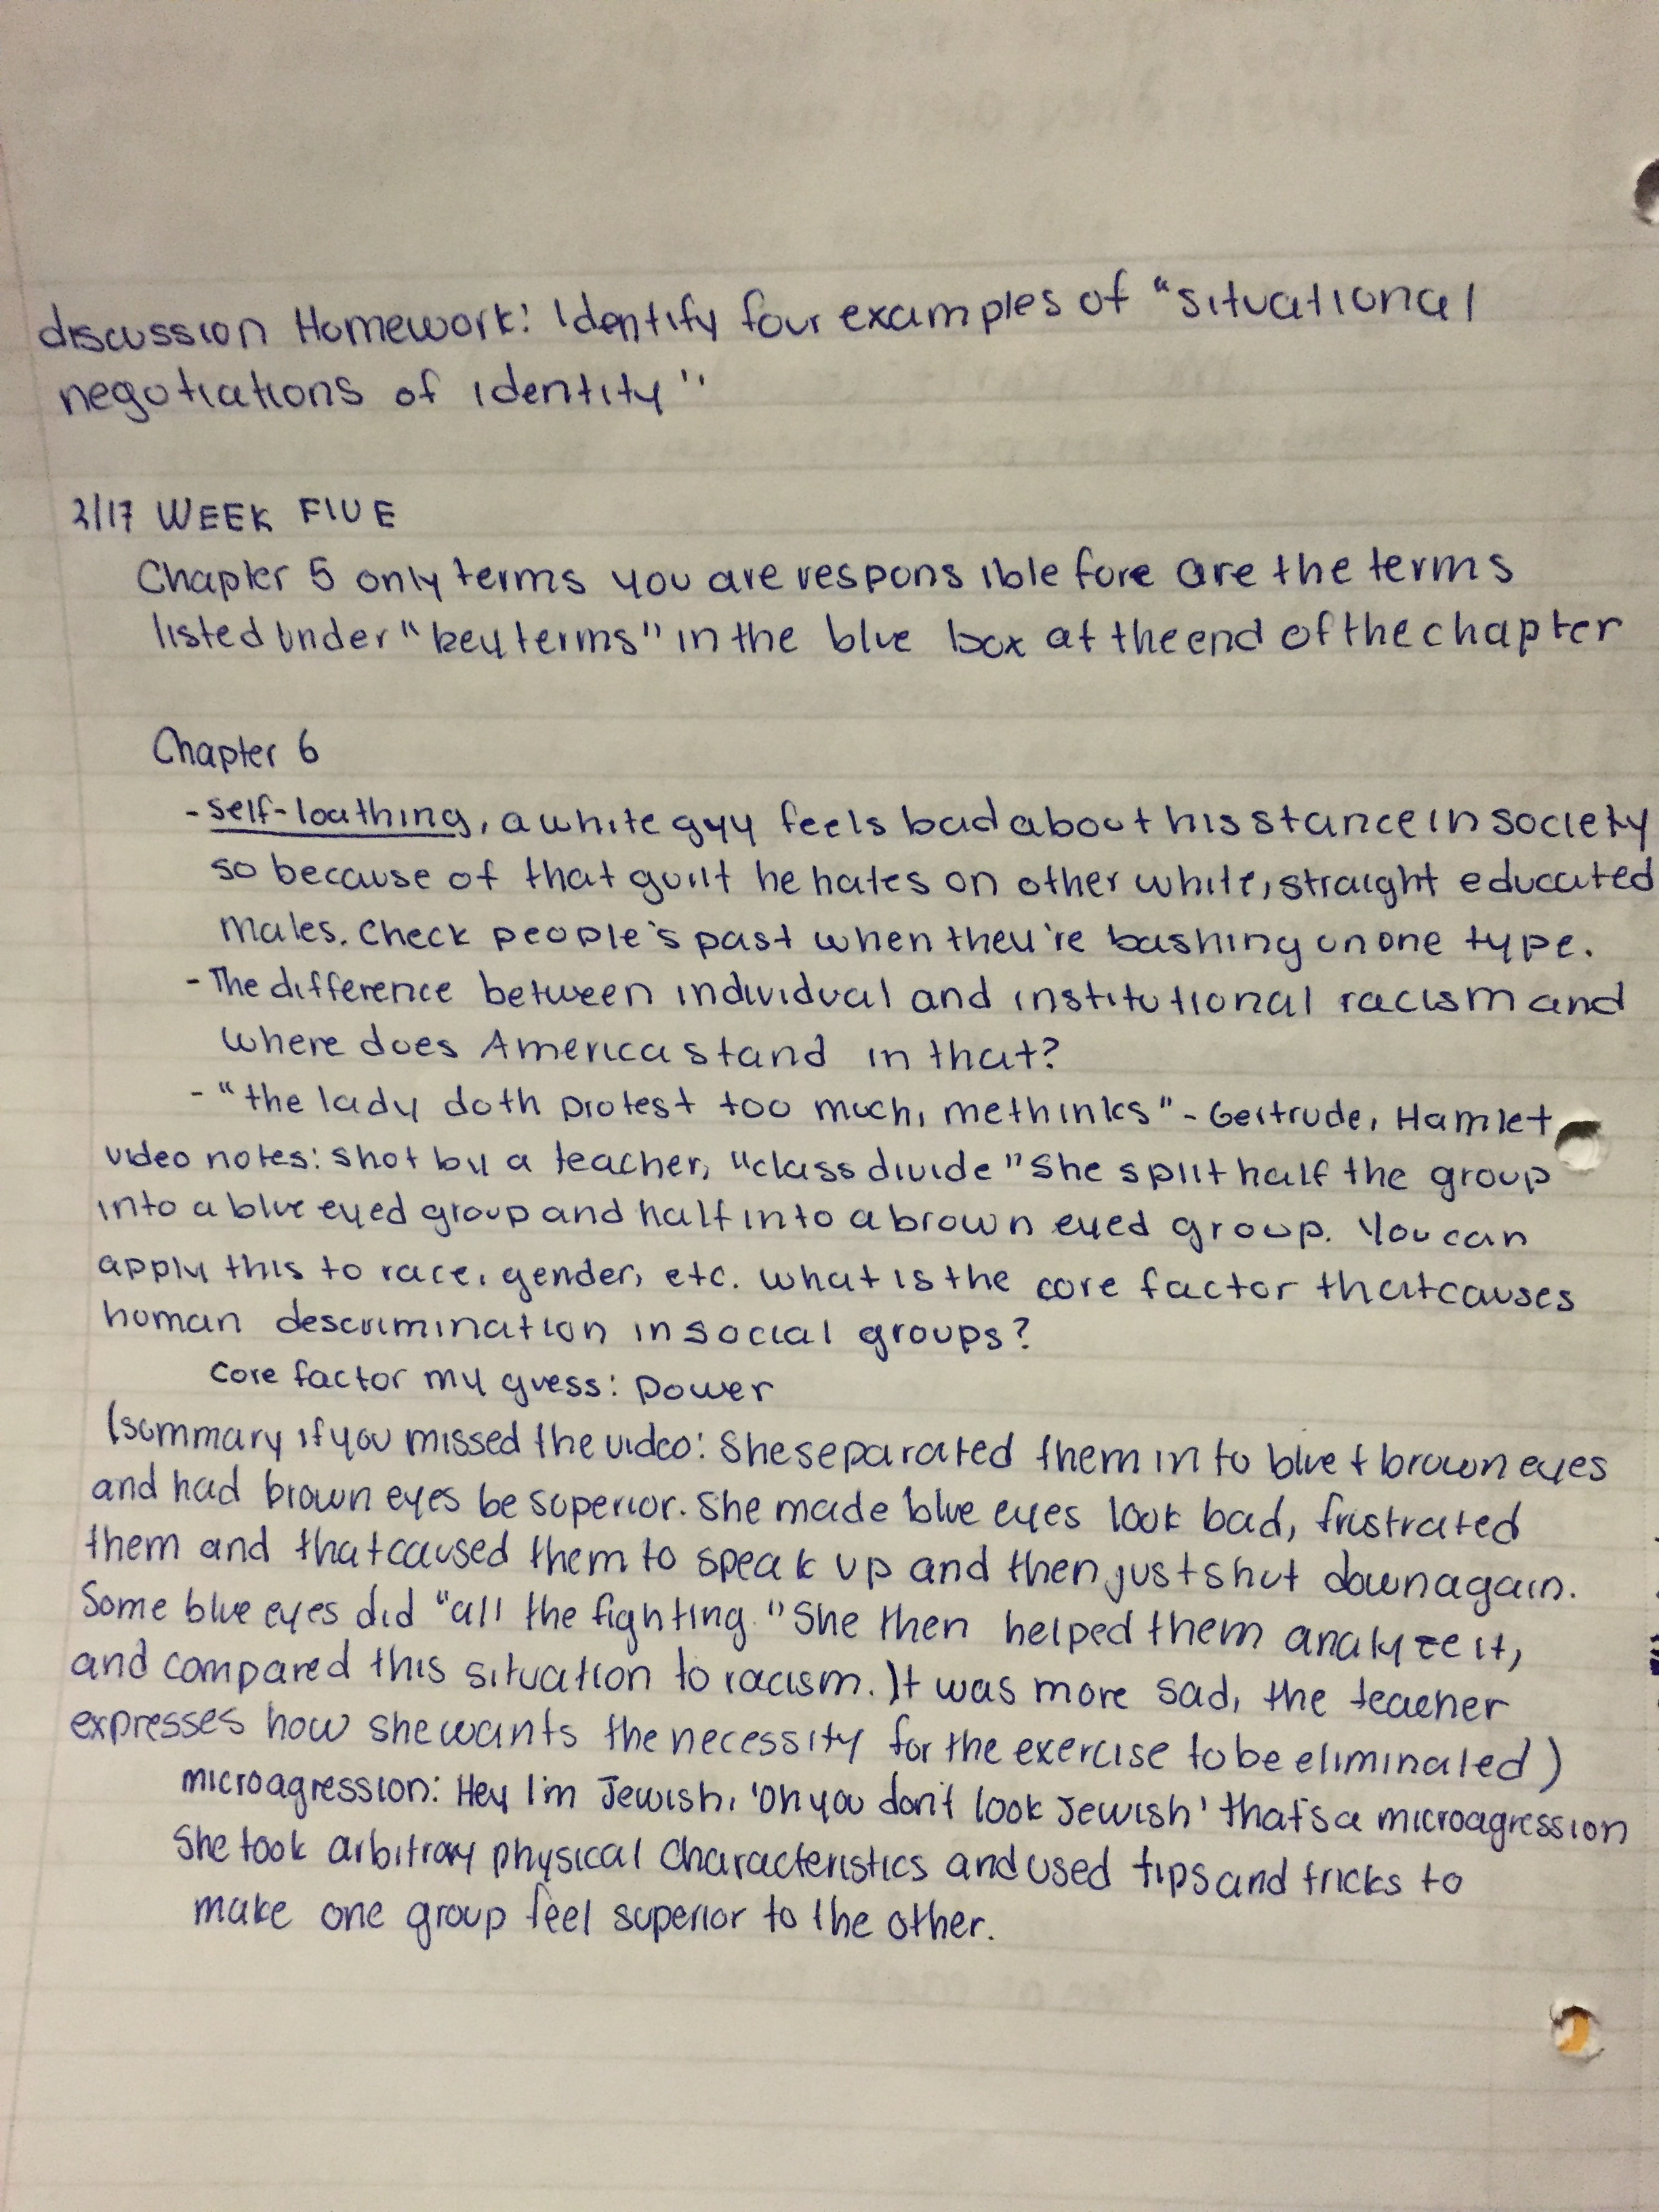 discussion Homework: Identify four examples of "situational
negotiations of identity"
2/17 WEEK FIVE
Chapter 5 only terms you are responsible fore are the terms
listed under "key terms" in the blue box at the end of the chapter
Chapter 6
- self-loathing, a white guy feels bad about his stance in society
so because of that guilt he hates on other white, straight educated
males. Check people's past when they're bashing on one type.
- The difference between individual and institutional racism and
where does America stand in that?
- "the lady doth protest too much, methinks" - Gertrude, Hamlet
video notes: shot by a teacher, "class divide" She split half the group
into a blue eyed group and half into a brown eyed group. You can
apply this to race, gender, etc. what is the core factor that causes
human descrimination in social groups?
core factor my guess: power
(summary if you missed the video: She separated them in to blue + brown eyes
and had brown eyes be superior. She made blue eyes look bad, frustrated
them and that caused them to speak up and then just shut down again.
Some blue eyes did "all the fighting." She then helped them analyze it,
and compared this situation to racism. It was more sad, the teacher
expresses how she wants the necessity for the exercise to be eliminated)
microagression: Hey I'm Jewish, 'Oh you don't look Jewish' that's a microagression
She took arbitrary physical characteristics and used tips and tricks to
make one group feel superior to the other.